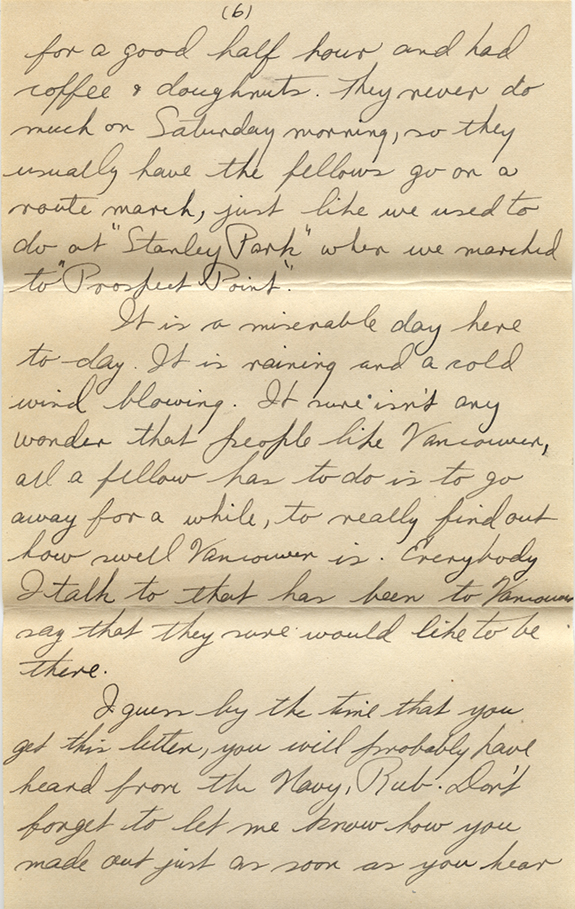 (6)
for a good half hour and had
coffee & doughnuts. They never do
much on Saturday morning, so they
usually have the fellows go on a
route march, just like we used to
do at "Stanley Park" when we marched
to "Prospect Point".
It is a miserable day here
to-day. It is raining and a cold
wind blowing. It sure isn't any
wonder that people like Vancouver,
all a fellow has to do is to go
away for a while, to really find out
how swell Vancouver is. Everybody
I talk to that has been to Vancouver
say that they sure would like to be
there.
I guess by the time that you
get this letter, you will probably have
heard from the Navy, Rub. Don't
forget to let me know how you
made out just as soon as you hear